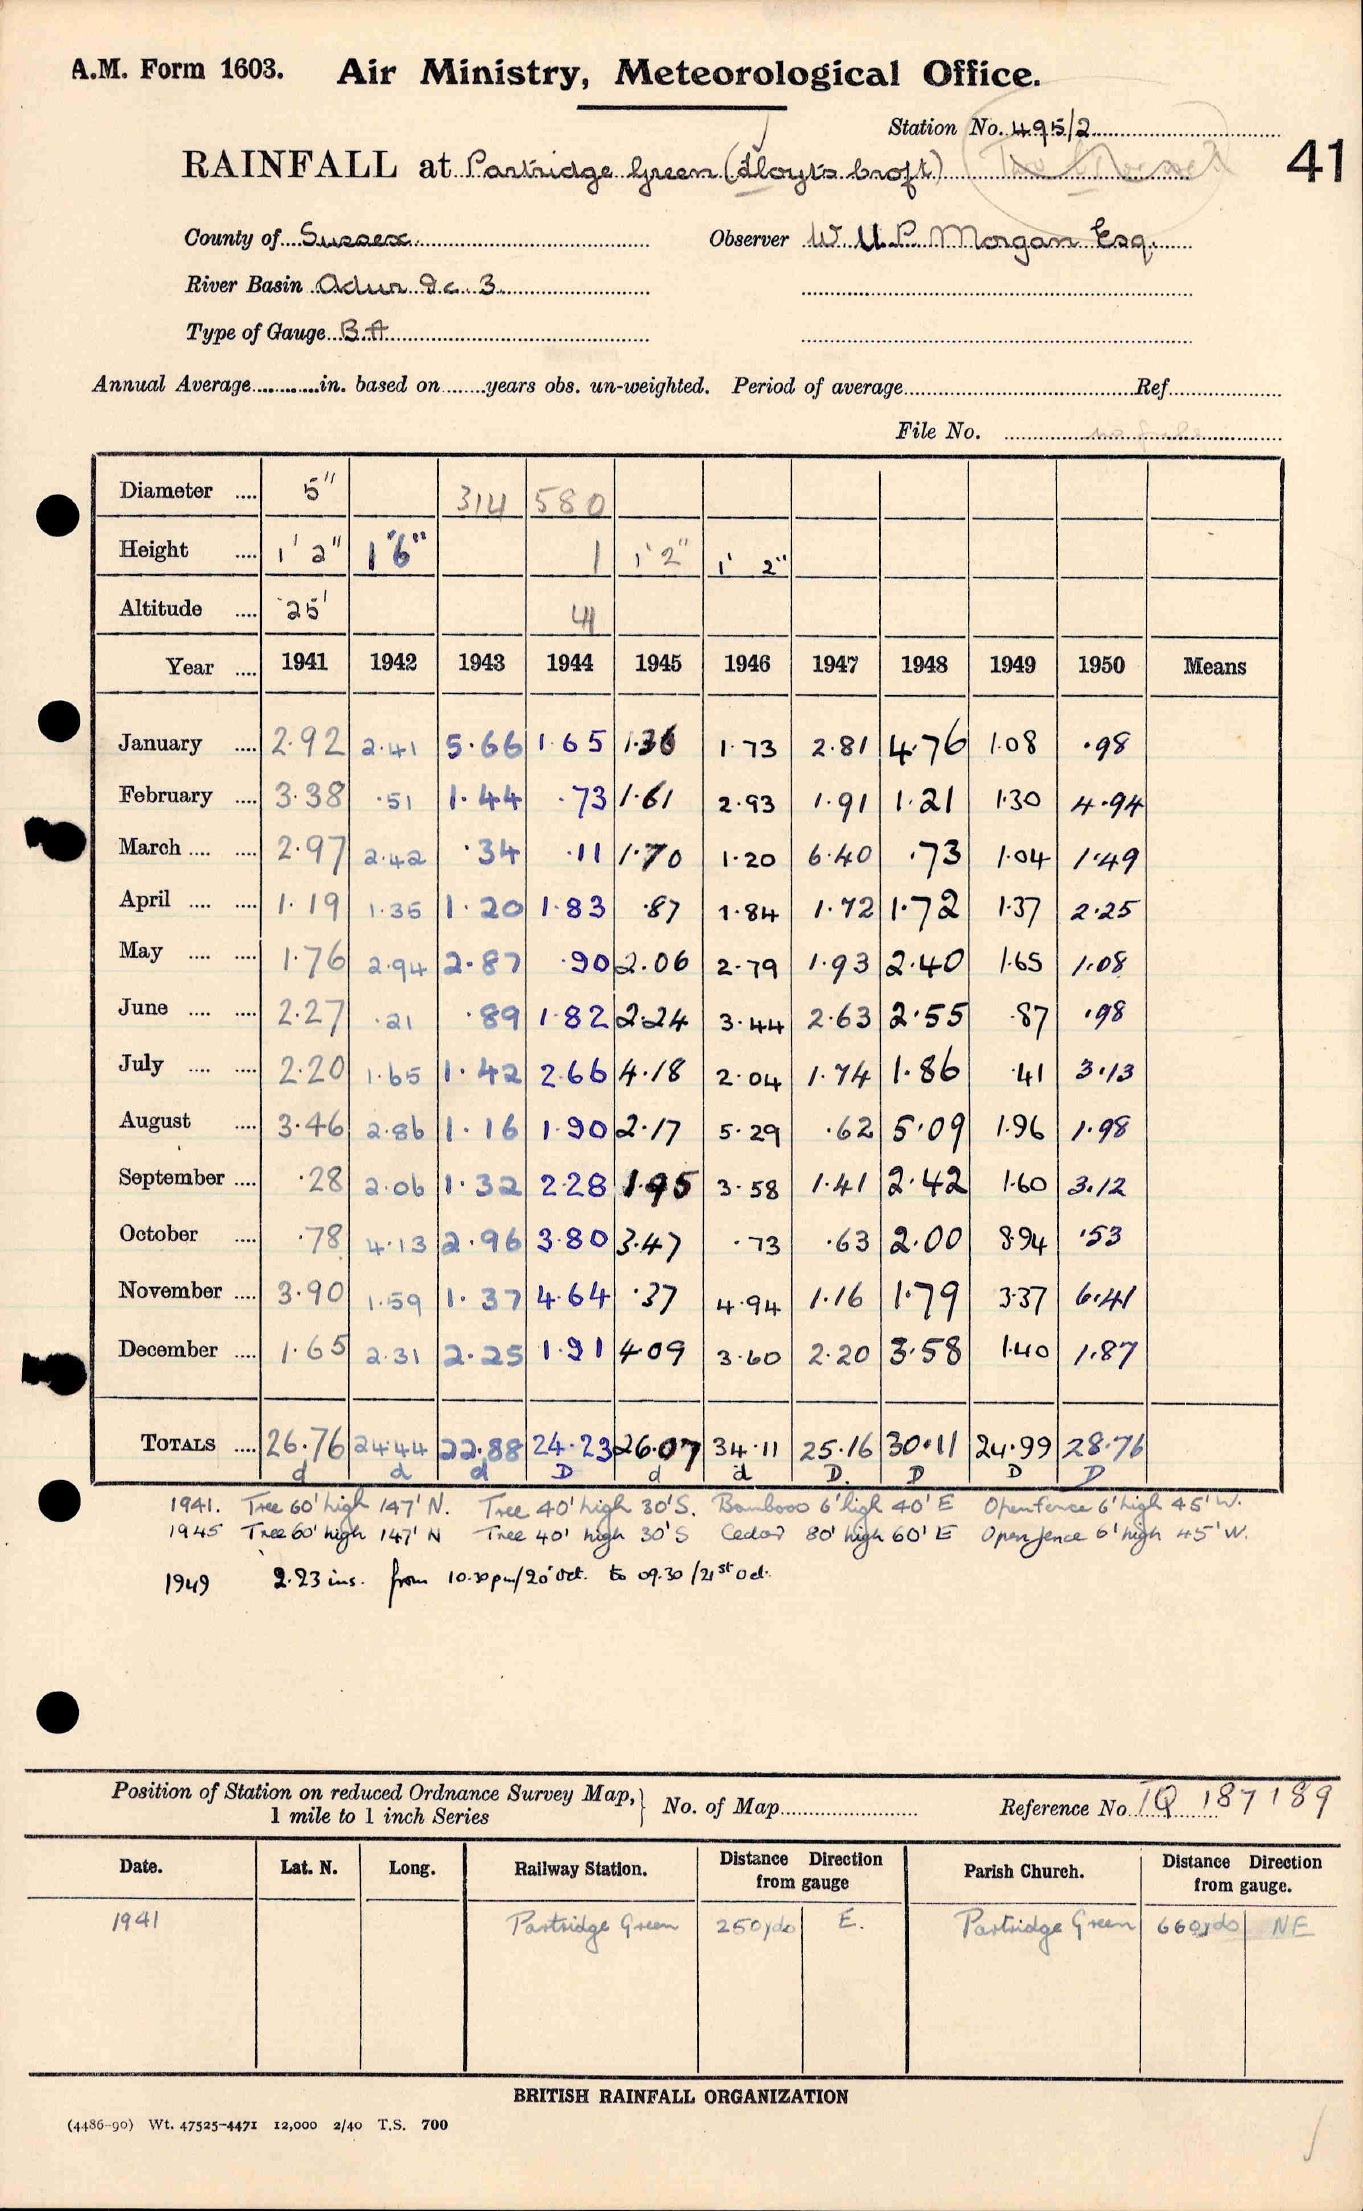 A.M. Form 1603. Air Ministry, Meteorological Office.
Station No. 495/2
41
RAINFALL at Partridge Green (Hoyt's Croft)
County of Sussex Observer W U.P. Morgan Esq.
River Basin Adur &c. 3
Type of Gauge B A
Annual Average............in. based on.......years obs. un-weighted. Period of average Ref.
File No.
Diameter .... 5" 314 580
Height .... 1' 2" 1'6" 1 1' 2" 1' 2"
Altitude .... 25' 4
Year .... 1941 1942 1943 1944 1945 1946 1947 1948 1949 1950 Means
January .... 2.92 2.41 5.66 1.65 1.36 1.73 2.81 4.76 1.08 .98
February .... 3.38 .51 1.44 .73 1.61 2.93 1.91 1.21 1.30 4.94
March .... .... 2.97 2.42 .34 .11 1.70 1.20 6.40 .73 1.04 1.49
April .... .... 1.19 1.35 1.20 1.83 .87 1.84 1.72 1.72 1.37 2.25
May .... .... 1.76 2.94 2.87 .90 2.06 2.79 1.93 2.40 1.65 1.08
June .... .... 2.27 .21 .89 1.82 2.24 3.44 2.63 2.55 .87 .98
July .... .... 2.20 1.65 1.42 2.66 4.18 2.04 1.74 1.86 .41 3.13
August .... 3.46 2.86 1.16 1.90 2.17 5.29 .62 5.09 1.96 1.98
September .... .28 2.06 1.32 2.28 1.95 3.58 1.41 2.42 1.60 3.12
October .... .78 4.13 2.96 3.80 3.47 .73 .63 2.00 8.94 .53
November .... 3.90 1.59 1.37 4.64 .37 4.94 1.16 1.79 3.37 6.41
December .... 1.65 2.31 2.25 1.91 4.09 3.60 2.20 3.58 1.40 1.87
TOTALS .... 26.76 24.44 22.88 24.23 26.07 34.11 25.16 30.11 24.99 28.76
d d d D d d D. D D D
1941. Tree 60' high 147' N. Tree 40' high 30' S. Bamboo 6' high 40' E Open fence 6' high 45' W.
1945 Tree 60' high 147' N Tree 40' high 30' S Cedar 80' high 60' E Open fence 6' high 45' W.
1949 2.23 ins. from 10.30 pm/20 Oct. to 09.30 /21st Oct.
Position of Station on reduced Ordnance Survey Map, 1 mile to 1 inch Series } No. of Map Reference No TQ 187189
Date. Lat. N. Long. Railway Station. Distance Direction from gauge Parish Church. Distance Direction from gauge.
1941 Partridge Green 250yds E. Partridge Green 660yds NE
BRITISH RAINFALL ORGANIZATION
(4486-90) Wt. 47525-4471 12,000 2/40 T.S. 700